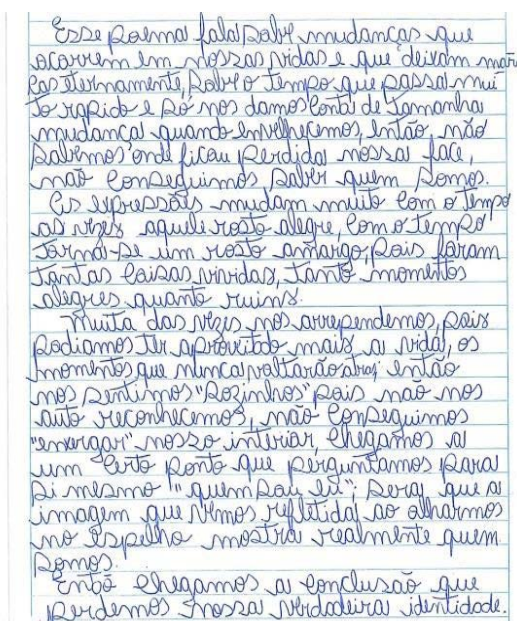 Esse poema fala sobre mudanças que
ocorrem em nossas vidas e que deixam mar
cas eternamente, sobre o tempo que passa mui
to rapido e só nos damos conta de tamanha
mudança quando envelhecemos, então, não
sabemos onde ficou perdida nossa face,
não conseguimos saber quem somos.
As expressões mudam muito com o tempo
as vezes aquele rosto alegre, com o tempo
torna-se um rosto amargo, pois foram
tantas coisas vividas, tanto momentos
alegres quanto ruins.
Muita das vezes nos arrependemos, pois
podiamos ter aproveitdo mais a vida, os
momentos que nunca voltarão atras, então
nos sentimos "sozinhos" pois não nos
auto reconhecemos, não conseguimos
"enxergar" nosso interior, chegamos a
um certo ponto que perguntamos para
si mesmo "quem sou eu"; sera que a
imagem que vemos refletida ao olharmos
no espelho mostra realmente quem
somos.
Entõ chegamos a conclusão que
perdemos nossa verdadeira identidade.